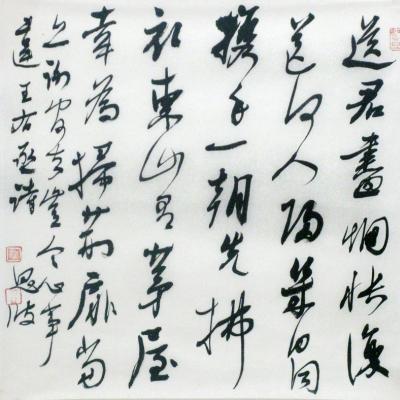 送君盡惆悵復
送何人歸幾日同
攜手一朝先拂
衣東山有茅屋
幸為掃荊扉當
亦謝官去豈令心事
違王右丞詩